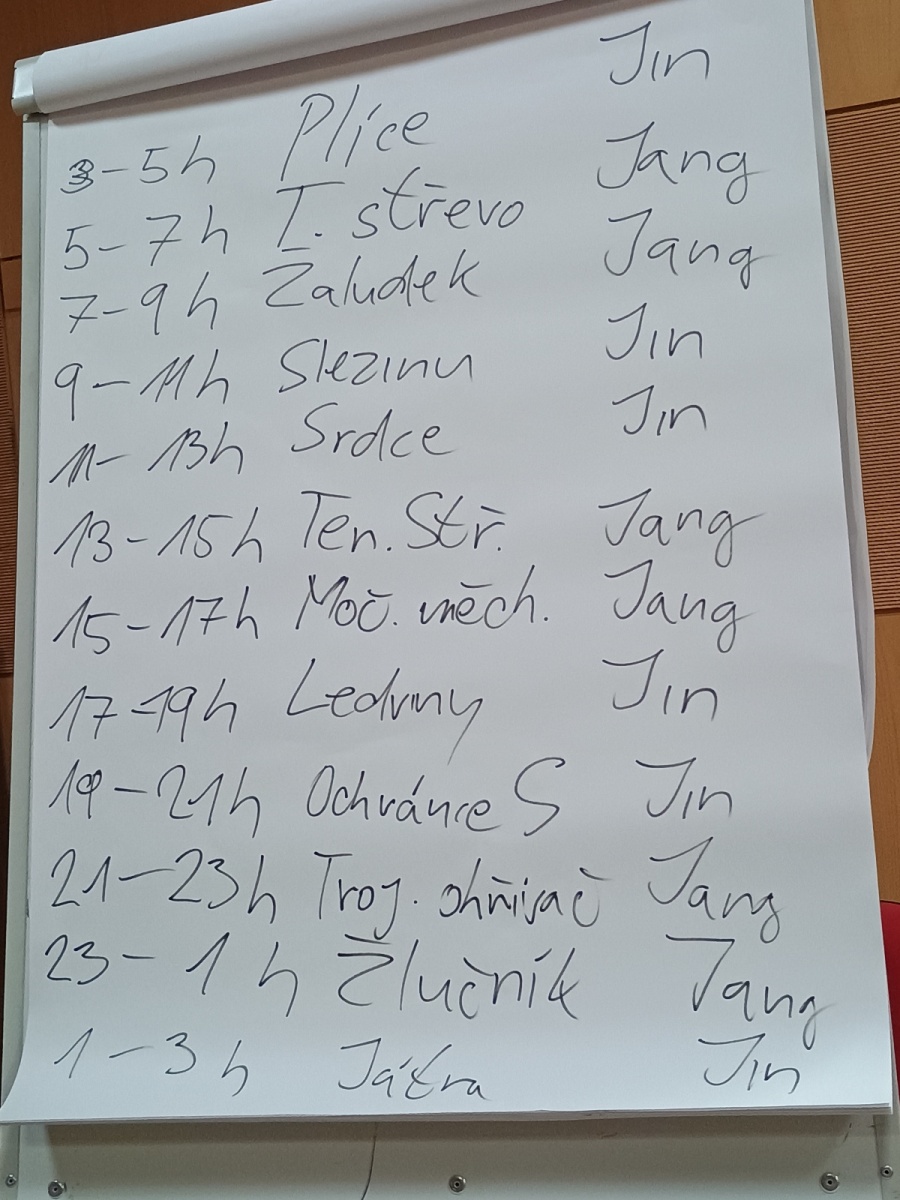 3-5h Plíce Jin
5-7h T. střevo Jang
7-9h Žaludek Jang
9-11h Slezinu Jin
11-13h Srdce Jin
13-15h Ten. Stř. Jang
15-17h Moč. měch. Jang
17-19h Ledviny Jin
19-21h Ochránce S Jin
21-23h Troj. ohřívač Jang
23-1h Žlučník Jang
1-3h Játra Jin